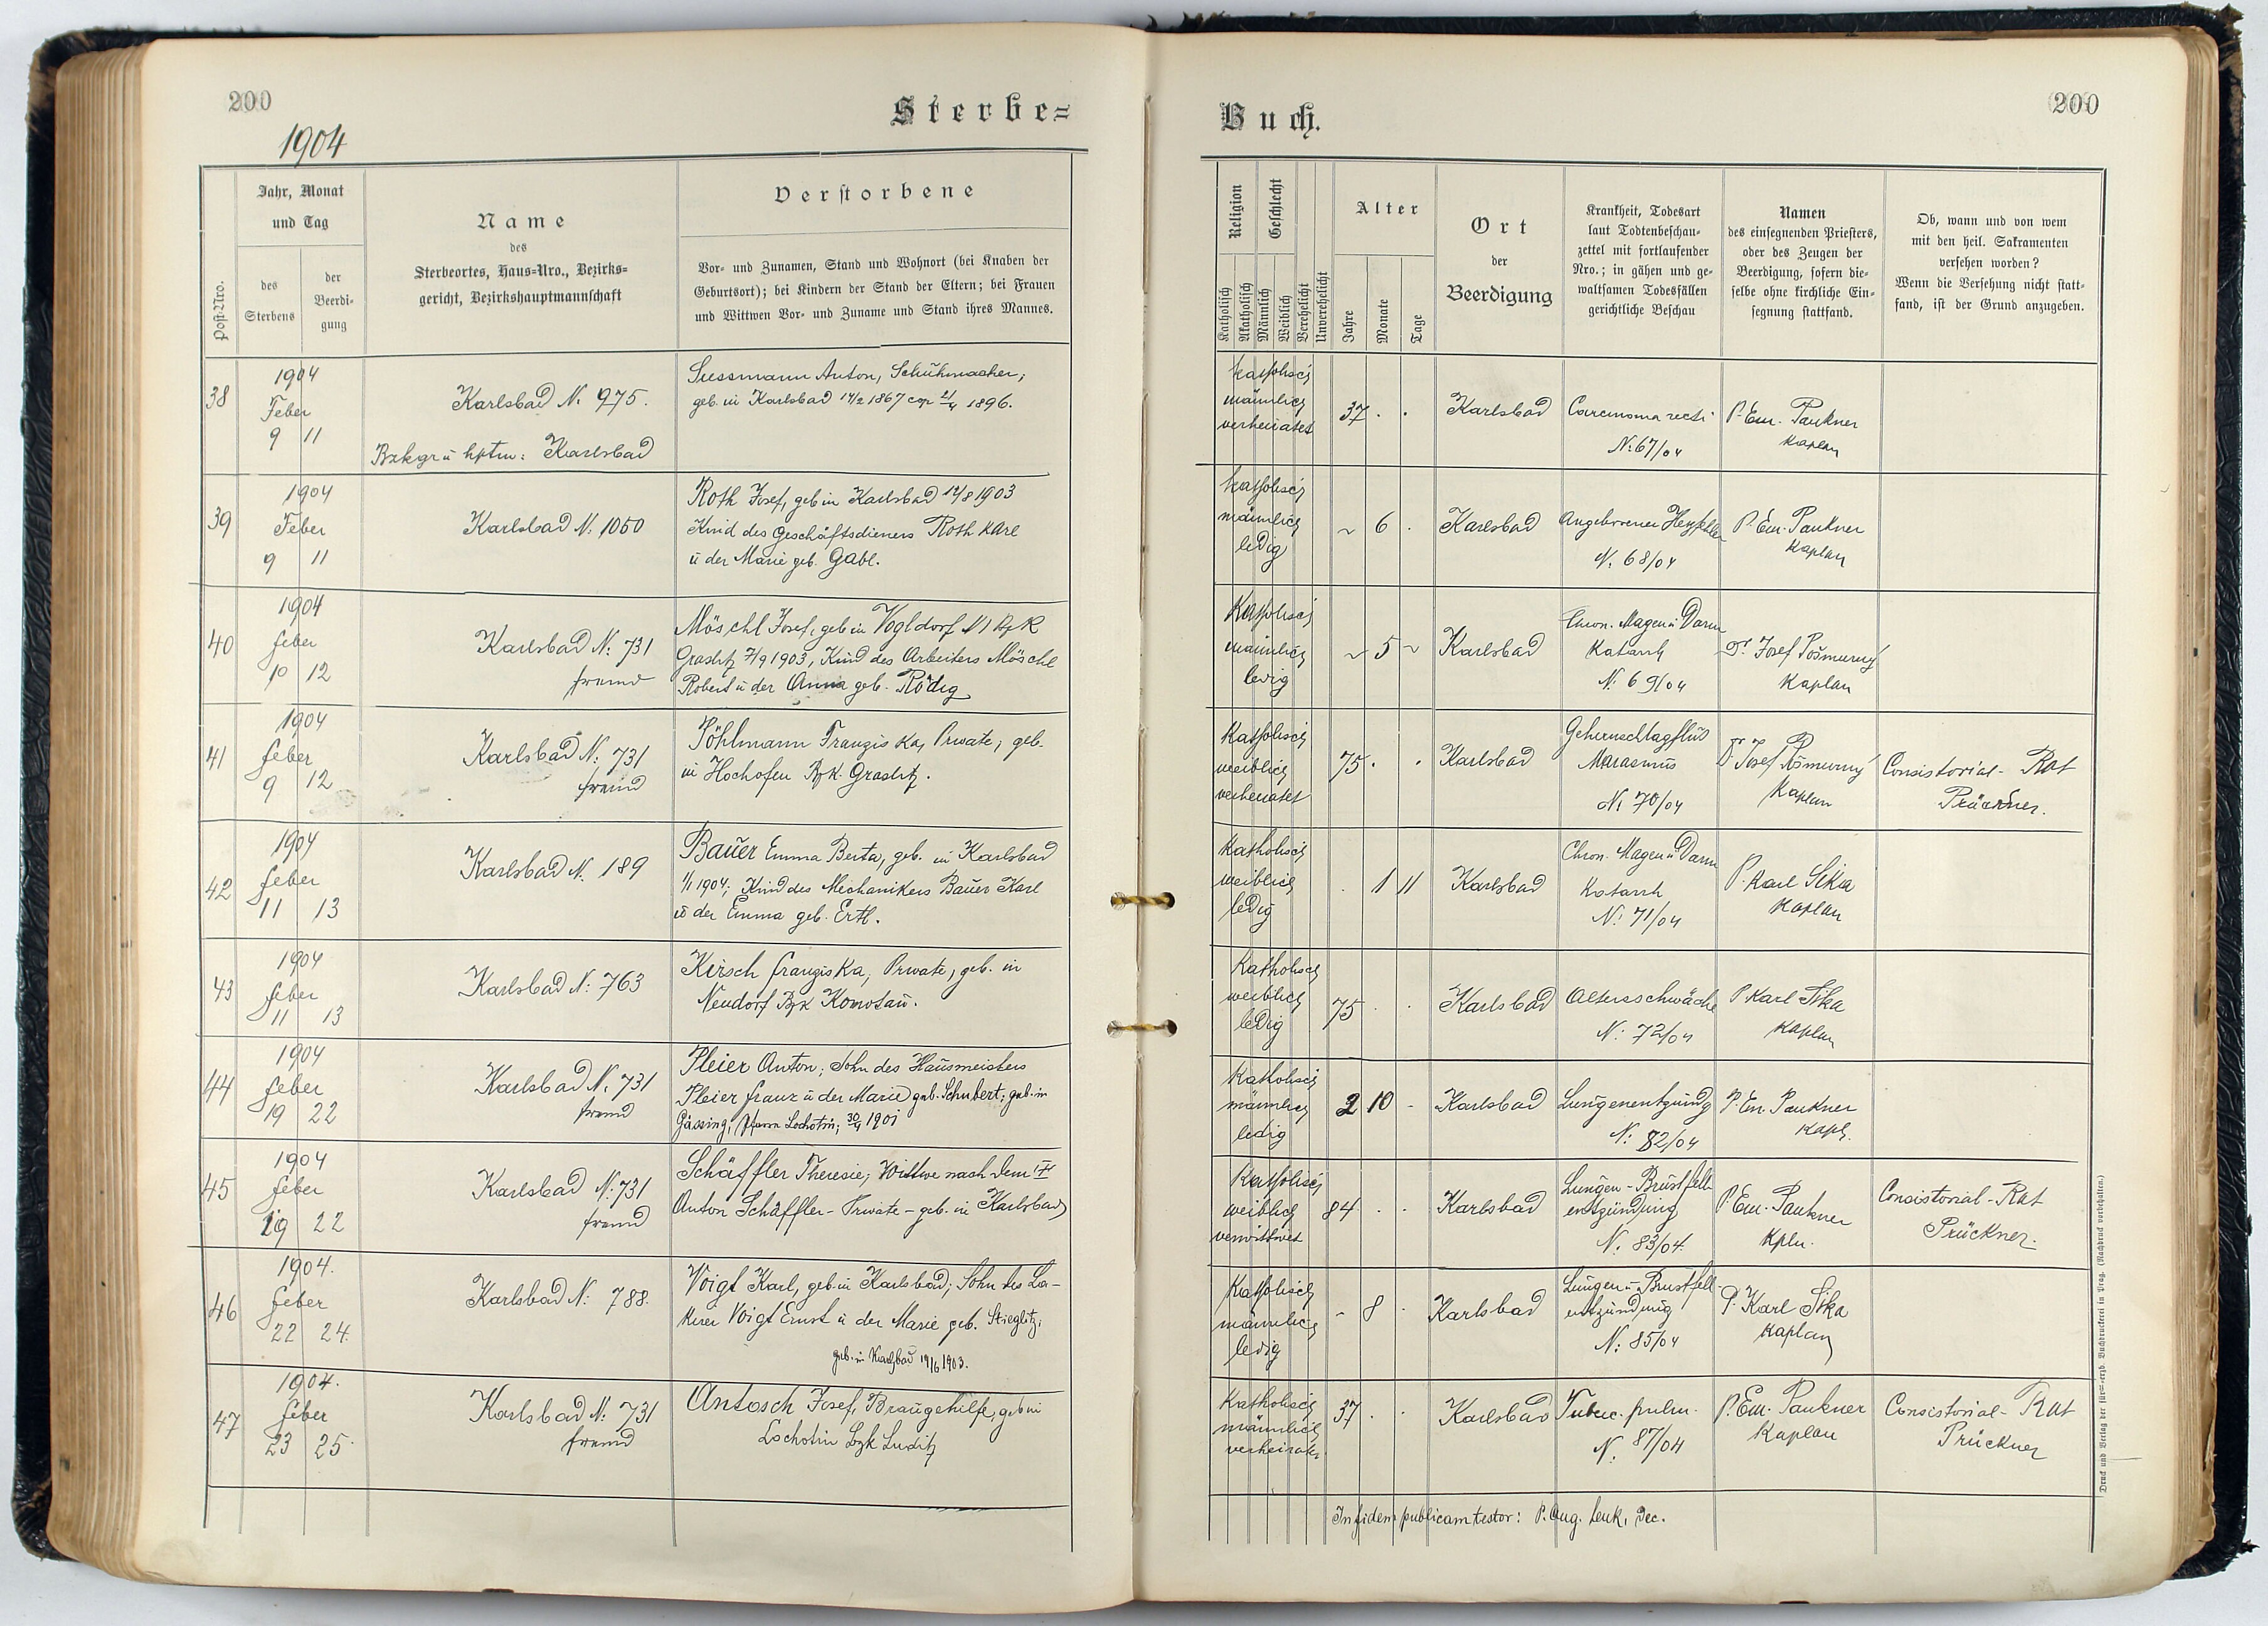 200
1904
Sterbe=
Post-Nro.
Jahr, Monat
und Tag
des
Sterbens
der
Beerdi-
gung
Name
des
Sterbeortes, Haus-Nro., Bezirks=
gericht, Bezirkshauptmannschaft
Verstorbene
Vor- und Zunamen, Stand und Wohnort (bei Knaben der
Geburtsort); bei Kindern der Stand der Eltern; bei Frauen
und Wittwen Vor- und Zuname und Stand ihres Mannes.
38
1904
Feber
9 11
Karlsbad N. 975.
Bzkgr u hptm: Karlsbad
Sussmann Anton, Schuhmacher;
geb. in Karlsbad 14/2 1867 cop 21/4 1896.
39
1904
Feber
9 11
Karlsbad N. 1050
Roth Josef, geb in Karlsbad 14/8 1903
Kind des Geschäftsdieners Roth Karl
u der Marie geb. Gabl.
40
1904
feber
10 12
Karlsbad N: 731
fremd
Möschl Josef, geb in Vogldorf N 1 Bzk
Graslitz 7/9 1903, Kind des Arbeiters Möschl
Robert u der Anna geb. Rödig
41
1904
feber
9 12
Karlsbad N: 731
fremd
Pöhlmann Franziska, Private, geb.
in Hochofen Bzk. Graslitz.
42
1904
feber
11 13
Karlsbad N. 189
Bauer Emma Berta, geb. in Karlsbad
1/1 1904; Kind des Mechanikers Bauer Karl
u der Emma geb. Ertl.
43
1904
feber
11 13
Karlsbad N: 763
Kirsch Franziska, Private, geb. in
Neudorf Bzk Komotau.
44
1904
feber
19 22
Karlsbad N. 731
fremd
Pleier Anton, Sohn des Hausmeisters
Pleier Franz u der Marie geb. Schubert; geb. in
Gässing, Pfarre Lochotin; 30/4 1901
45
1904
feber
19 22
Karlsbad N: 731
fremd
Schäffler Theresie, Wittwe nach dem
Anton Schäffler - Private - geb. in Karlsbad
46
1904.
feber
22 24.
Karlsbad N: 788.
Voigt Karl, geb. in Karlsbad; Sohn des La-
kirer Voigt Ernst u der Marie geb. Stieglitz;
geb. in Karlsbad 19/6 1903.
47
1904.
feber
23 25.
Karlsbad N: 731
fremd
Antosch Josef, Braugehilfe, geb in
Lochotin Bzk Luditz
200
Buch.
Religion
Geschlecht
Katholisch
Akatholisch
Männlich
Weiblich
Verehelicht
Unverehelicht
Alter
Jahre
Monate
Tage
Ort
der
Beerdigung
Krankheit, Todesart
laut Todtenbeschau-
zettel mit fortlaufender
Nro.; in gähen und ge-
waltsamen Todesfällen
gerichtliche Beschau
Namen
des einsegnenden Priesters,
oder des Zeugen der
Beerdigung, sofern die-
selbe ohne kirchliche Ein-
segnung stattfand.
Ob, wann und von wem
mit den heil. Sakramenten
versehen worden?
Wenn die Versehung nicht statt-
fand, ist der Grund anzugeben.
katholisch
männlich
verheiratet
37 . .
Karlsbad
Carcinoma recti
N. 67/04
P. Em. Paukner
Kaplan
katholisch
männlich
ledig
~ 6 .
Karlsbad
Angeborener Herzfehler
N. 68/04
P. Em. Paukner
Kaplan
Katholisch
männlich
ledig
~ 5 ~
Karlsbad
Chron. Magen u Darm
Katarrh
N. 69/04
P. Josef Pošmurný
Kaplan
Katholisch
weiblich
verheiratet
75 . .
Karlsbad
Gehirnschlagfluß
Marasmus
N. 70/04
P. Josef Pošmurný
Kaplan
Consistorial-Rat
Prückner.
Katholisch
weiblich
ledig
. 1 11
Karlsbad
Chron. Magen u Darm
Katarrh
N: 71/04
P. Karl Sika
Kaplan
Katholisch
weiblich
ledig
75 . .
Karlsbad
Altersschwäche
N: 72/04
P. Karl Sika
Kaplan
Katholisch
männlich
ledig
2 10 -
Karlsbad
Lungenentzündg
N: 82/04
P. Em. Paukner
Kapl.
Katholisch
weiblich
verwittwet
84 . .
Karlsbad
Lungen-Brustfell
entzündung
N. 83/04.
P. Em. Paukner
Kpln.
Consistorial-Rat
Prückner.
Katholisch
männlich
ledig
- 8 .
Karlsbad
Lungen u Brustfell-
entzündung
N: 85/04
P. Karl Sika
Kaplan
Katholisch
männlich
verheirat.
37 . .
Karlsbad
Tuberc. pulm.
N. 87/04
P. Em. Paukner
Kaplan
Consistorial-Rat
Prückner
In fidem publicam testor: P. Aug. Lenk, Dec.
Druck und Verlag der fürst-erzb. Buchdruckerei in Prag. (Nachdruck vorbehalten.)